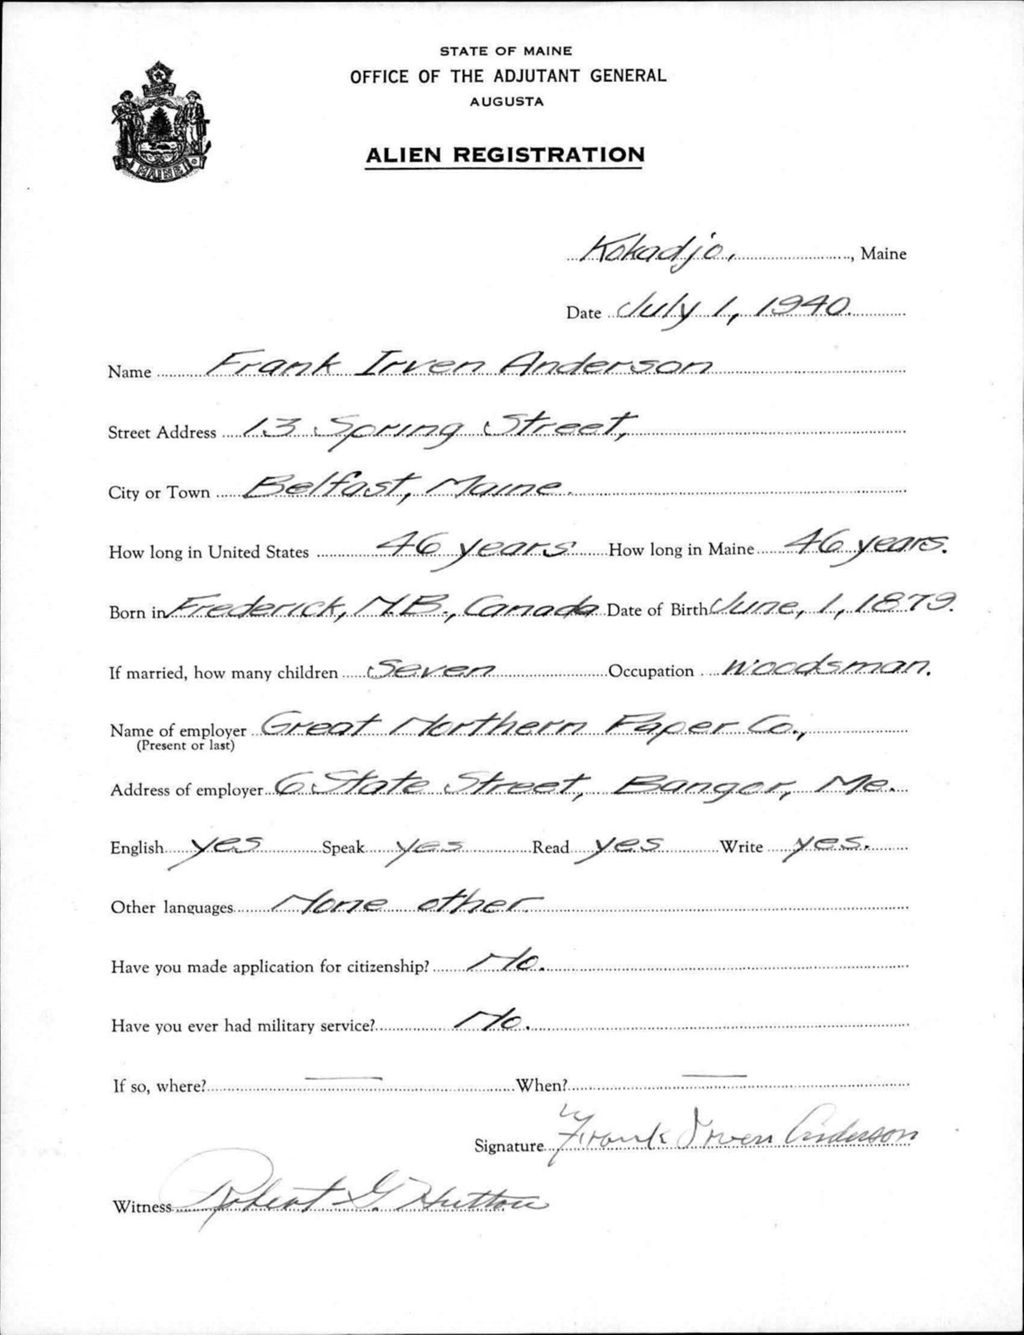 STATE OF MAINE
OFFICE OF THE ADJUTANT GENERAL
AUGUSTA
ALIEN REGISTRATION
MAINE
Kokadjo, , Maine
Date July 1, 1940.
Name Frank Irven Anderson
Street Address 13 Spring Street,
City or Town Belfast, Maine.
How long in United States 46 years How long in Maine 46 years.
Born in Frederick, N.B., Canada Date of Birth June, 1, 1879.
If married, how many children Seven Occupation woodsman.
Name of employer Great Northern Paper Co.,
(Present or last)
Address of employer 6 State Street, Bangor, Me.
English yes Speak yes Read yes Write yes.
Other languages None other
Have you made application for citizenship? No.
Have you ever had military service? No.
If so, where? — When? —
Signature Frank Irven Anderson
Witness Robert G. Hutton